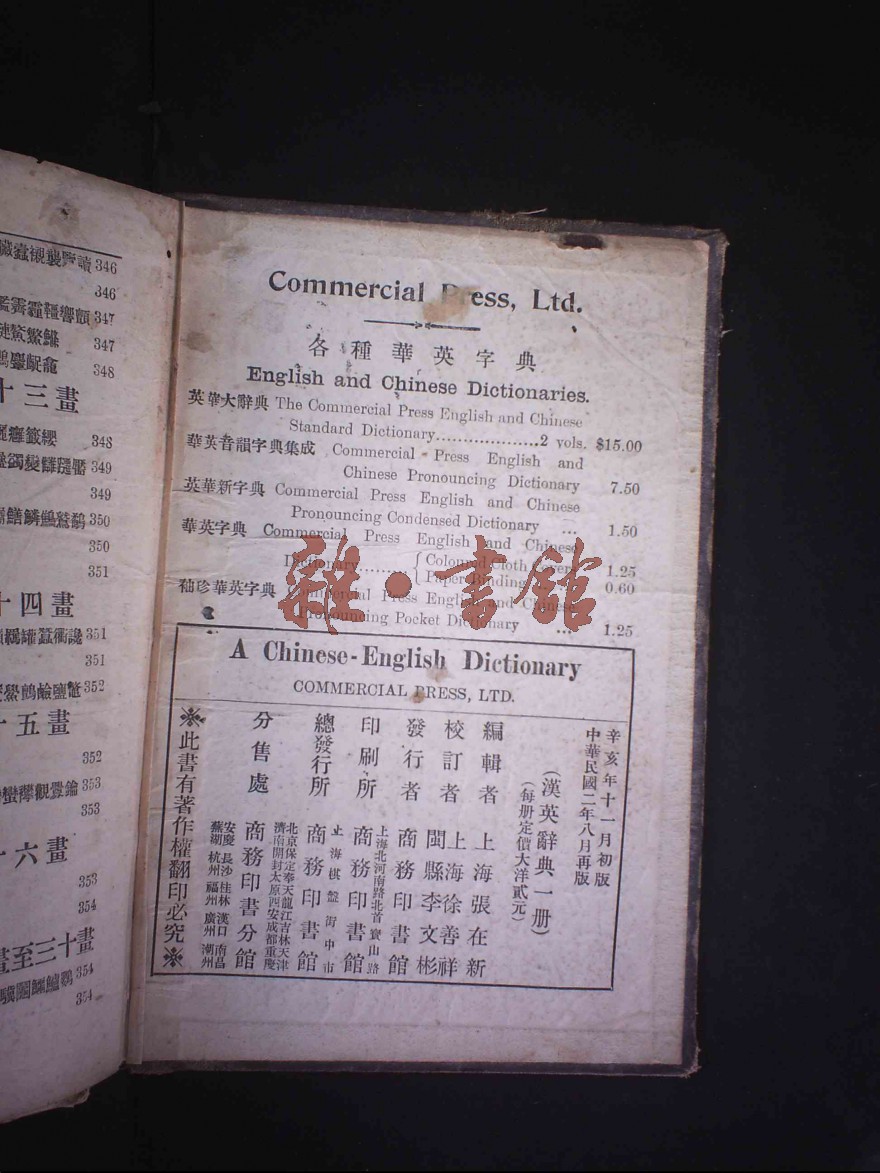 346
346
347
347
348
十三畫
348
349
349
350
350
351
十四畫
351
351
352
十五畫
352
353
353
十六畫
353
354
畫至三十畫
354
354
Commercial Press, Ltd.
各種華英字典
English and Chinese Dictionaries.
英華大辭典 The Commercial Press English and Chinese
Standard Dictionary..................2 vols. $15.00
華英音韻字典集成 Commercial Press English and
Chinese Pronouncing Dictionary 7.50
英華新字典 Commercial Press English and Chinese
Pronouncing Condensed Dictionary ... 1.50
華英字典 Commercial Press English and Chinese
Dictionary........{ Coloured Cloth Covers 1.25
Paper Binding 0.60
袖珍華英字典 Commercial Press English and Chinese
Pronouncing Pocket Dictionary ... 1.25
雜·書館
A Chinese-English Dictionary
COMMERCIAL PRESS, LTD.
辛亥年十一月初版
中華民國二年八月再版
(漢英辭典一册)
(每册定價大洋貳元)
編輯者 上海張在新
校訂者 上海徐善祥
閩縣李文彬
發行者 商務印書館
上海北河南路北首寶山路
印刷所 商務印書館
上海棋盤街中市
總發行所 商務印書館
北京保定奉天龍江吉林天津
濟南開封太原西安成都重慶
分售處 商務印書分館
安慶長沙桂林漢口南昌
蕪湖杭州福州廣州潮州
※此書有著作權翻印必究※